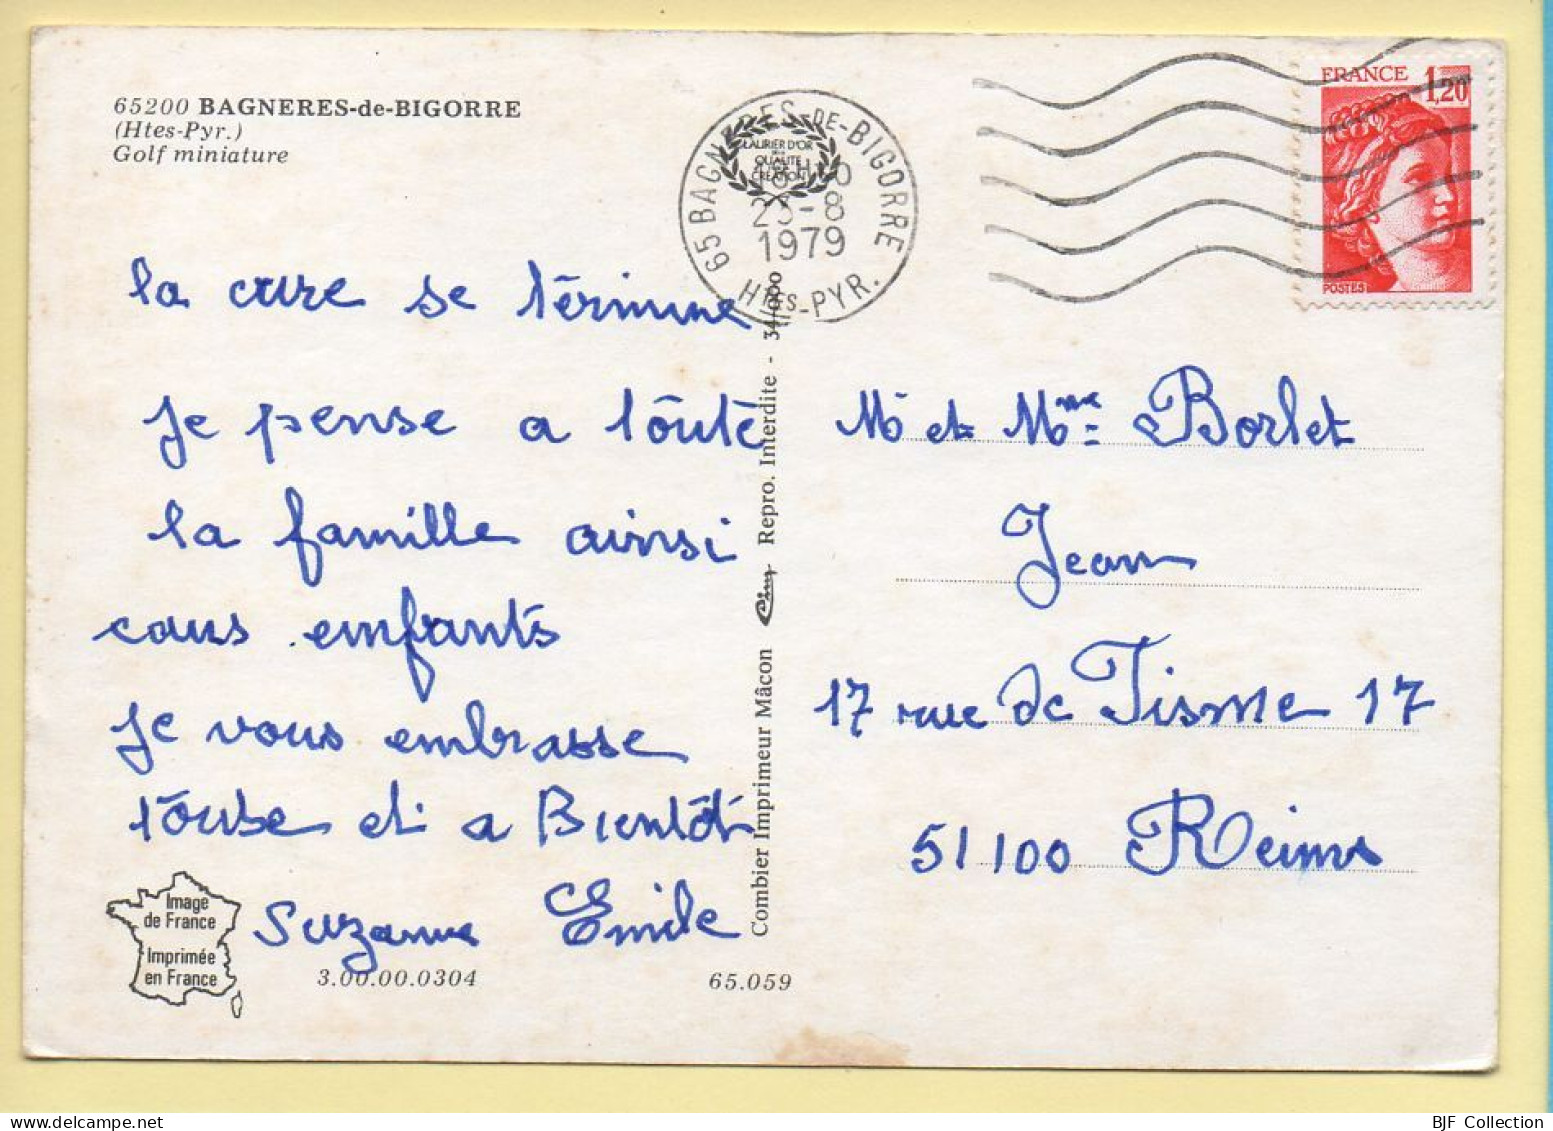 65200 BAGNERES-de-BIGORRE
(Htes-Pyr.)
Golf miniature
65 BAGNERES-DE-BIGORRE
LAURIER D'OR
QUALITÉ
CRÉATION
23-8
1979
HTES-PYR.
FRANCE 1,20
POSTES
la cure se términe
Je pense a toute
la famille ainsi
caus enfants
Je vous embrasse
toute et a Bientôt
Suzanne Emile
Image
de France
Imprimée
en France
3.00.00.0304
65.059
Combier Imprimeur Mâcon Cim Repro. Interdite - 34/000
Mr et Mme Borlet
Jean
17 rue de Tisme 17
51100 Reims
BJF Collection